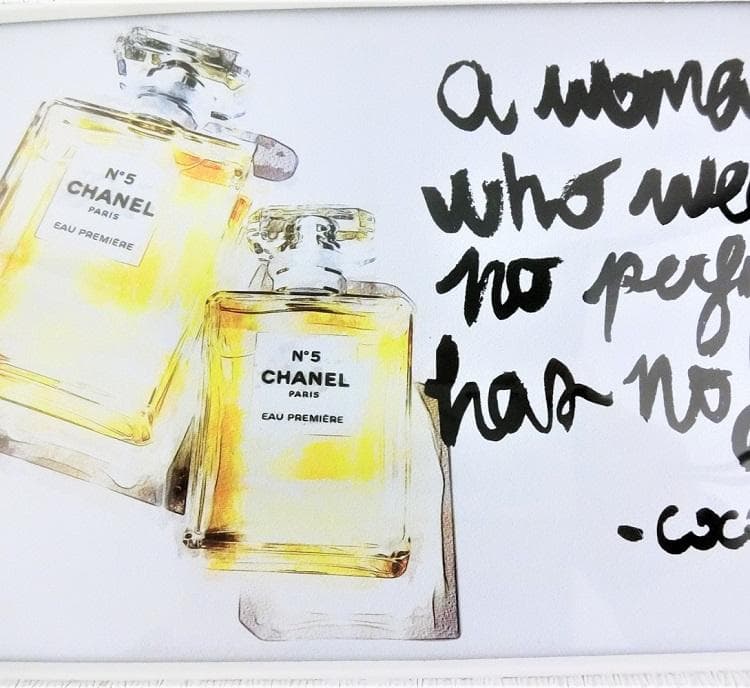 N°5
CHANEL
PARIS
EAU PREMIÈRE
N°5
CHANEL
PARIS
EAU PREMIÈRE
a woma
who we
no perfu
has no
- coc